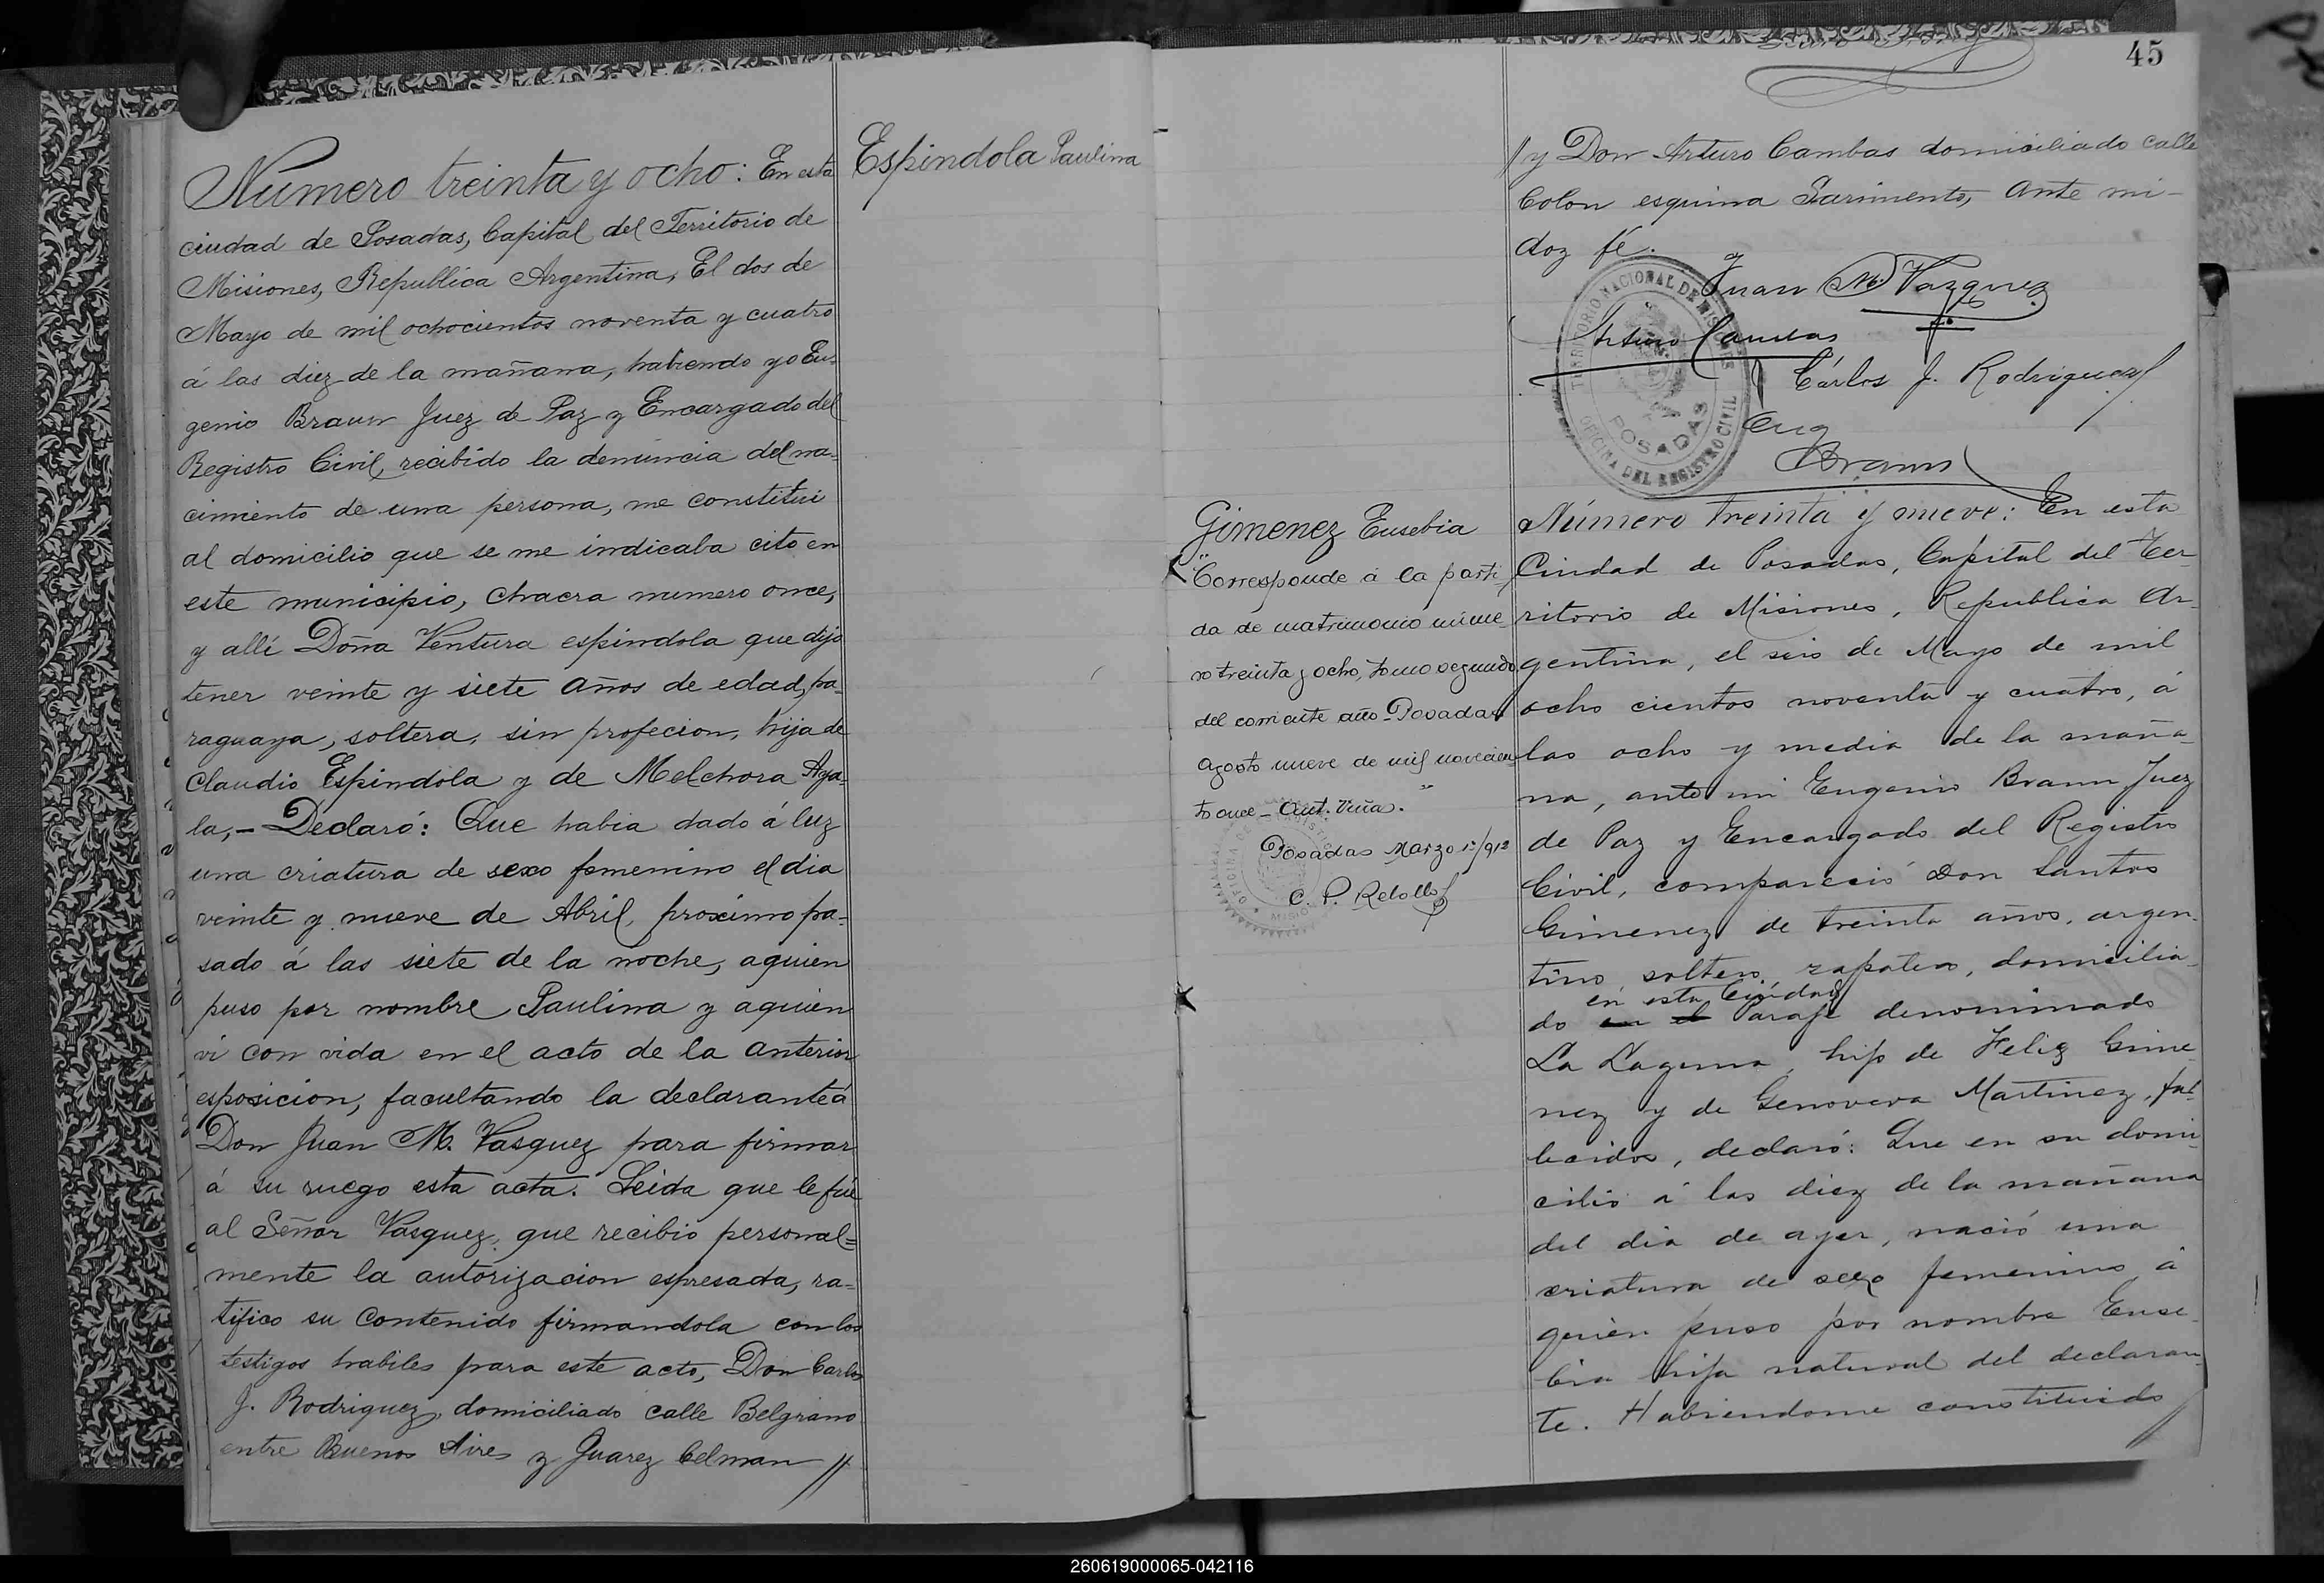 Número treinta y ocho: En esta
ciudad de Posadas, Capital del Territorio de
Misiones, Republica Argentina, El dos de
Mayo de mil ochocientos noventa y cuatro
á las diez de la mañana, habiendo yo Eu-
genio Braun Juez de Paz y Encargado del
Registro Civil, recibido la denuncia del na-
cimiento de una persona, me constitui
al domicilio que se me indicaba cito en
este municipio, chacra numero once,
y allí Doña Ventura espindola que dijo
tener veinte y siete años de edad, pa-
raguaya, soltera, sin profecion, hija de
Claudio Espindola y de Melchora Aya-
la,- Declaró: Que habia dado á luz
una criatura de sexo femenino el dia
veinte y nueve de Abril, proximo pa-
sado á las siete de la noche, aquien
puso por nombre Paulina y aquien
ví con vida en el acto de la anterior
esposicion, facultando la declarante á
Don Juan M. Vasquez para firmar
á su ruego esta acta. Leida que le fue
al Señor Vasquez, que recibio personal=
mente la autorizacion espresada, ra-
tifico su contenido firmandola con los
testigos habiles para este acto, Don Carlos
J. Rodriguez, domiciliado calle Belgrano
entre Buenos Aires y Juarez Celman //
Espindola Paulina
45
// y Don Arturo Cambas domiciliado calle
Colon esquina Sarmiento, Ante mi-
doy fé.
Juan M. Vazquez
Arturo Cambas
Cárlos J. Rodriguez
Eug
Braun
TERRITORIO NACIONAL DE MISIONES
POSADAS
OFICINA DEL REGISTRO CIVIL
Gimenez Eusebia
"Corresponde á la parti-
da de matrimonio núme-
ro treinta y ocho, tomo segundo
del corriente año - Posadas
agosto nueve de mil novecien-
to once - Ant. Viña."
Posadas Marzo 1º/912
Número treinta y nueve: En esta
Ciudad de Posadas, Capital del Ter-
ritorio de Misiones, Republica Ar-
gentina, el seis de Mayo de mil
ocho cientos noventa y cuatro, á
las ocho y media de la maña-
na, ante mi Eugenio Braun Juez
de Paz y Encargado del Registro
Civil, compareció Don Santos
Gimenez de treinta años, argen-
tino, soltero, zapatero, domicilia-
en esta Ciudad
do en el Paraje denominado
La Laguna, hijo de Feliz Gime-
nez y de Genoveva Martinez, fal-
lecidos, declaró: Que en su domi-
cilio á las diez de la mañana
del dia de ayer, nació una
criatura de sexo femenino á
quien puso por nombre Euse-
bia hija natural del declaran-
te. Habiendome constituido //
260619000065-042116